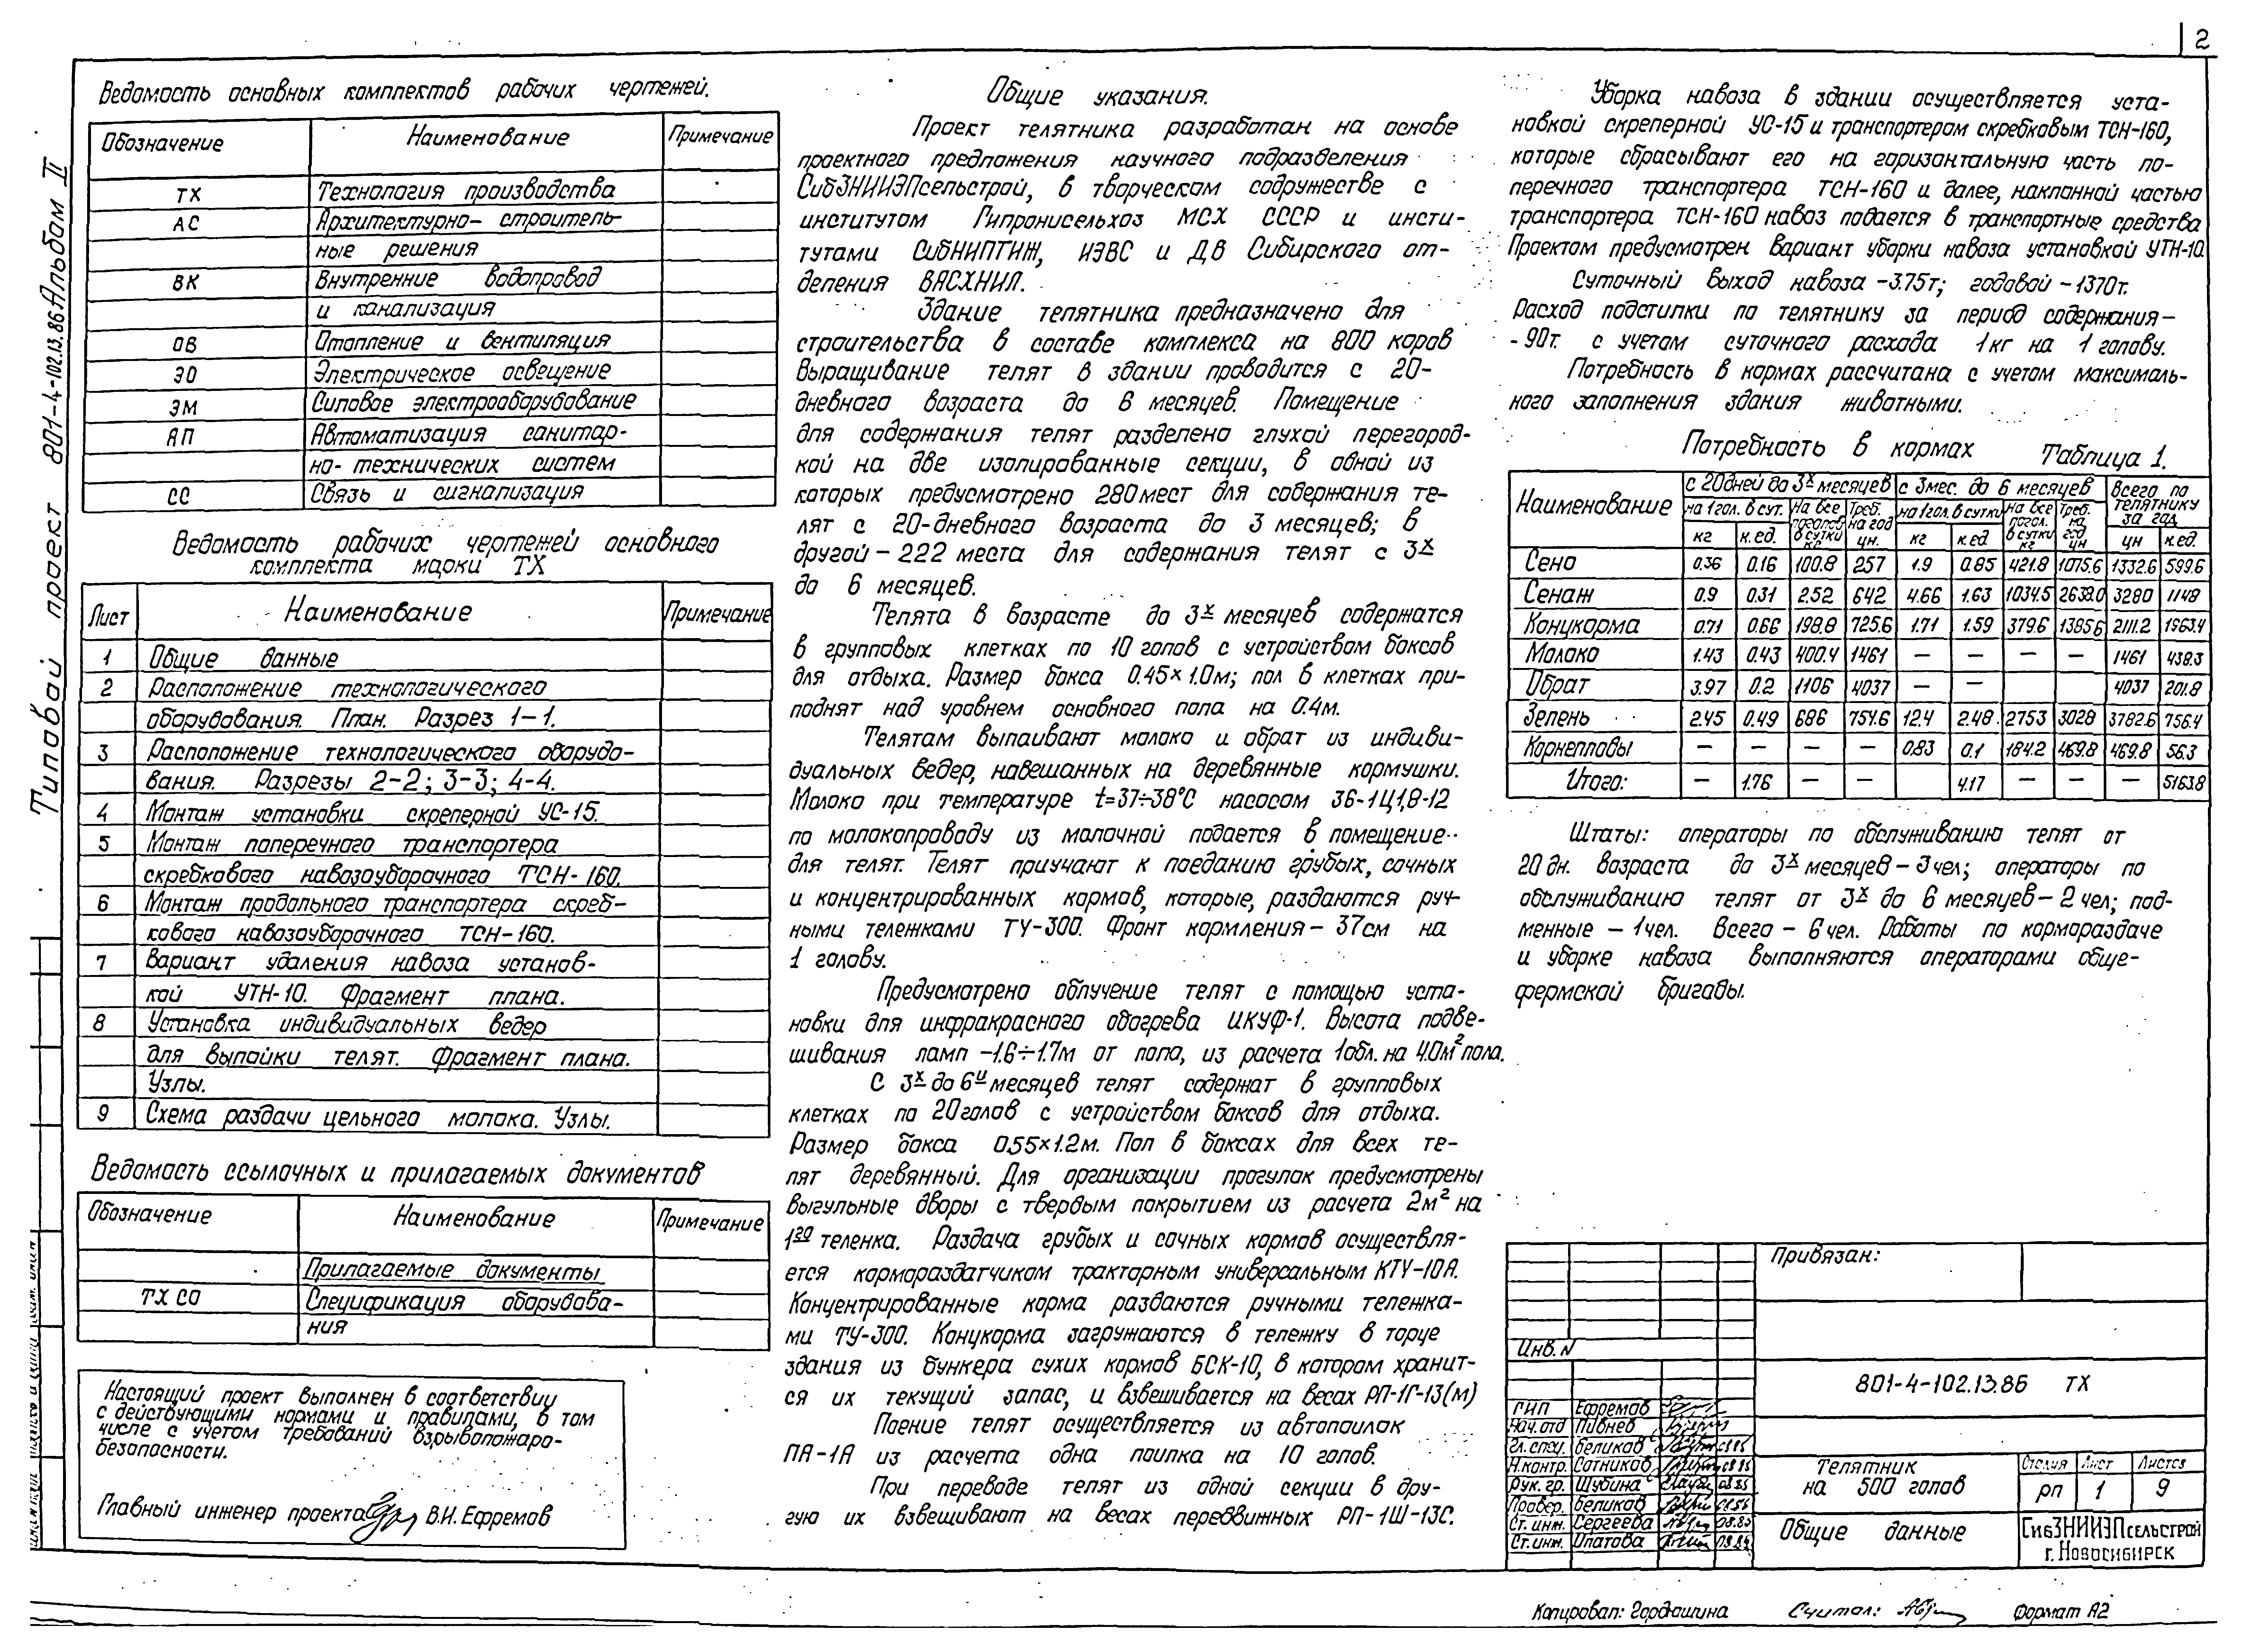 2
Типовой проект 801-4-102.13.86 Альбом II
Ведомость основных комплектов рабочих чертежей.
Обозначение Наименование Примечание
ТХ Технология производства
АС Архитектурно-строитель-
ные решения
ВК Внутренние водопровод
и канализация
ОВ Отопление и вентиляция
ЭО Электрическое освещение
ЭМ Силовое электрооборудование
АП Автоматизация санитар-
но-технических систем
СС Связь и сигнализация
Ведомость рабочих чертежей основного
комплекта марки ТХ
Лист Наименование Примечание
1 Общие данные
2 Расположение технологического
оборудования. План. Разрез 1-1.
3 Расположение технологического оборудо-
вания. Разрезы 2-2; 3-3; 4-4.
4 Монтаж установки скреперной УС-15.
5 Монтаж поперечного транспортера
скребкового навозоуборочного ТСН-160.
6 Монтаж продольного транспортера скреб-
кового навозоуборочного ТСН-160.
7 Вариант удаления навоза установ-
кой УТН-10. Фрагмент плана.
8 Установка индивидуальных ведер
для выпойки телят. Фрагмент плана.
Узлы.
9 Схема раздачи цельного молока. Узлы.
Ведомость ссылочных и прилагаемых документов
Обозначение Наименование Примечание
Прилагаемые документы
ТХ СО Спецификация оборудова-
ния
Настоящий проект выполнен в соответствии
с действующими нормами и правилами, в том
числе с учетом требований взрывопожаро-
безопасности.
Главный инженер проекта В.И. Ефремов
Общие указания.
Проект телятника разработан на основе
проектного предложения научного подразделения
СибЗНИИЭПсельстрой, в творческом содружестве с
институтом Гипронисельхоз МСХ СССР и инсти-
тутами СибНИПТИЖ, ИЭВС и ДВ Сибирского от-
деления ВАСХНИЛ.
Здание телятника предназначено для
строительства в составе комплекса на 800 коров
Выращивание телят в здании проводится с 20-
дневного возраста до 6 месяцев. Помещение
для содержания телят разделено глухой перегород-
кой на две изолированные секции, в одной из
которых предусмотрено 280 мест для содержания те-
лят с 20-дневного возраста до 3 месяцев; в
другой - 222 места для содержания телят с 3х
до 6 месяцев.
Телята в возрасте до 3х месяцев содержатся
в групповых клетках по 10 голов с устройством боксов
для отдыха. Размер бокса 0.45×1.0м; пол в клетках при-
поднят над уровнем основного пола на 0.4м.
Телятам выпаивают молоко и обрат из индиви-
дуальных ведер, навешанных на деревянные кормушки.
Молоко при температуре t=37÷38°С насосом 36-1Ц1,8-12
по молокопроводу из молочной подается в помещение
для телят. Телят приучают к поеданию грубых, сочных
и концентрированных кормов, которые, раздаются руч-
ными тележками ТУ-300. Фронт кормления - 37см на
1 голову.
Предусмотрено облучение телят с помощью уста-
новки для инфракрасного обогрева ИКУФ-1. Высота подве-
шивания ламп -1.6÷1.7м от пола, из расчета 1обл. на 4.0м² пола.
С 3х до 6и месяцев телят содержат в групповых
клетках по 20 голов с устройством боксов для отдыха.
Размер бокса 0.55×1.2м. Пол в боксах для всех те-
лят деревянный. Для организации прогулок предусмотрены
выгульные дворы с твердым покрытием из расчета 2м² на
1го теленка. Раздача грубых и сочных кормов осуществля-
ется кормораздатчиком тракторным универсальным КТУ-10А.
Концентрированные корма раздаются ручными тележка-
ми ТУ-300. Концкорма загружаются в тележку в торце
здания из бункера сухих кормов БСК-10, в котором хранит-
ся их текущий запас, и взвешивается на весах РП-1Г-13(м)
Поение телят осуществляется из автопоилок
ПА-1А из расчета одна поилка на 10 голов.
При переводе телят из одной секции в дру-
гую их взвешивают на весах передвижных РП-1Ш-13С.
Уборка навоза в здании осуществляется уста-
новкой скреперной УС-15 и транспортером скребковым ТСН-160,
которые сбрасывают его на горизонтальную часть по-
перечного транспортера ТСН-160 и далее, наклонной частью
транспортера ТСН-160 навоз подается в транспортные средства
Проектом предусмотрен вариант уборки навоза установкой УТН-10.
Суточный выход навоза - 3.75т; годовой - 1370т.
Расход подстилки по телятнику за период содержания -
- 90т. с учетом суточного расхода 1кг на 1 голову.
Потребность в кормах рассчитана с учетом максималь-
ного заполнения здания животными.
Потребность в кормах Таблица 1.
Наименование с 20 дней до 3х месяцев с 3 мес. до 6 месяцев Всего по телятнику за год
на 1 гол. в сут. На все поголов в сутки кг Треб. на год цн. на 1 гол. в сутки На все погол. в сутки кг Треб. на год цн
кг к.ед. кг к.ед цн к.ед.
Сено 0.36 0.16 100.8 257 1.9 0.85 421.8 1075.6 1332.6 599.6
Сенаж 0.9 0.31 252 642 4.66 1.63 1034.5 2638.0 3280 1148
Концкорма 0.71 0.66 198.8 725.6 1.71 1.59 379.6 1385.6 2111.2 1963.4
Молоко 1.43 0.43 400.4 1461 — — — — 1461 438.3
Обрат 3.97 0.2 1106 4037 — — 4037 201.8
Зелень 2.45 0.49 686 754.6 12.4 2.48 2753 3028 3782.6 756.4
Корнеплоды — — — — 0.83 0.1 184.2 469.8 469.8 56.3
Итого: — 1.76 — — 4.17 — — — 5163.8
Штаты: операторы по обслуживанию телят от
20 дн. возраста до 3х месяцев - 3 чел; операторы по
обслуживанию телят от 3х до 6 месяцев - 2 чел; под-
менные - 1чел. Всего - 6 чел. Работы по кормораздаче
и уборке навоза выполняются операторами обще-
фермской бригады.
Привязан:
Инв. N
801-4-102.13.86 ТХ
ГИП Ефремов
Нач. отд Пивнев
Гл. спец. Беликов
Н.контр. Сотников
Рук. гр. Шубина
Провер. Беликов
Ст. инж. Сергеева
Ст. инж. Ипатова
Телятник
на 500 голов
Стадия Лист Листов
РП 1 9
Общие данные
СибЗНИИЭПсельстрой
г. Новосибирск
Копировал: Гордюшина Считал: Формат А2